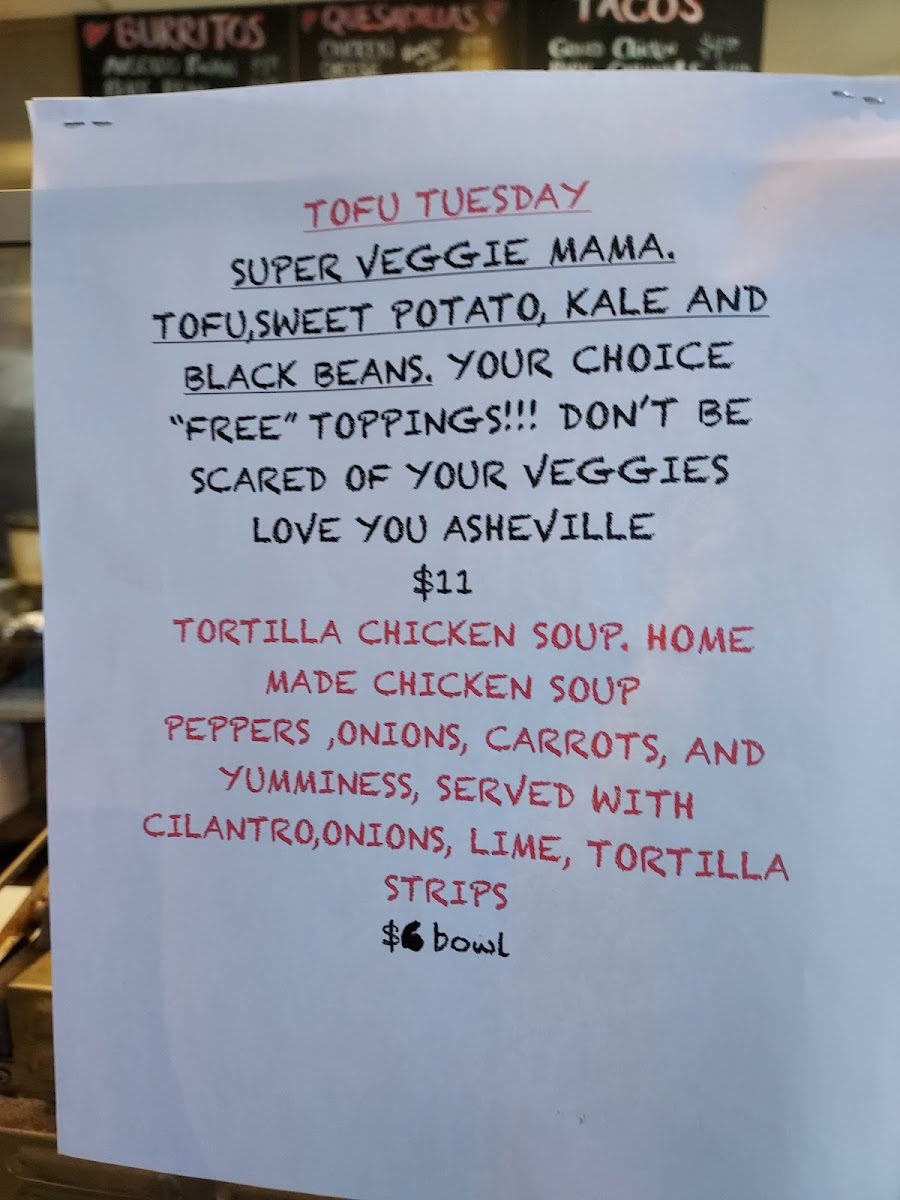 BURRITOS
QUESADILLAS
TACOS
CHICKEN
CHEESE
TOFU TUESDAY
SUPER VEGGIE MAMA.
TOFU,SWEET POTATO, KALE AND
BLACK BEANS. YOUR CHOICE
"FREE" TOPPINGS!!! DON'T BE
SCARED OF YOUR VEGGIES
LOVE YOU ASHEVILLE
$11
TORTILLA CHICKEN SOUP. HOME
MADE CHICKEN SOUP
PEPPERS ,ONIONS, CARROTS, AND
YUMMINESS, SERVED WITH
CILANTRO,ONIONS, LIME, TORTILLA
STRIPS
$6 bowl